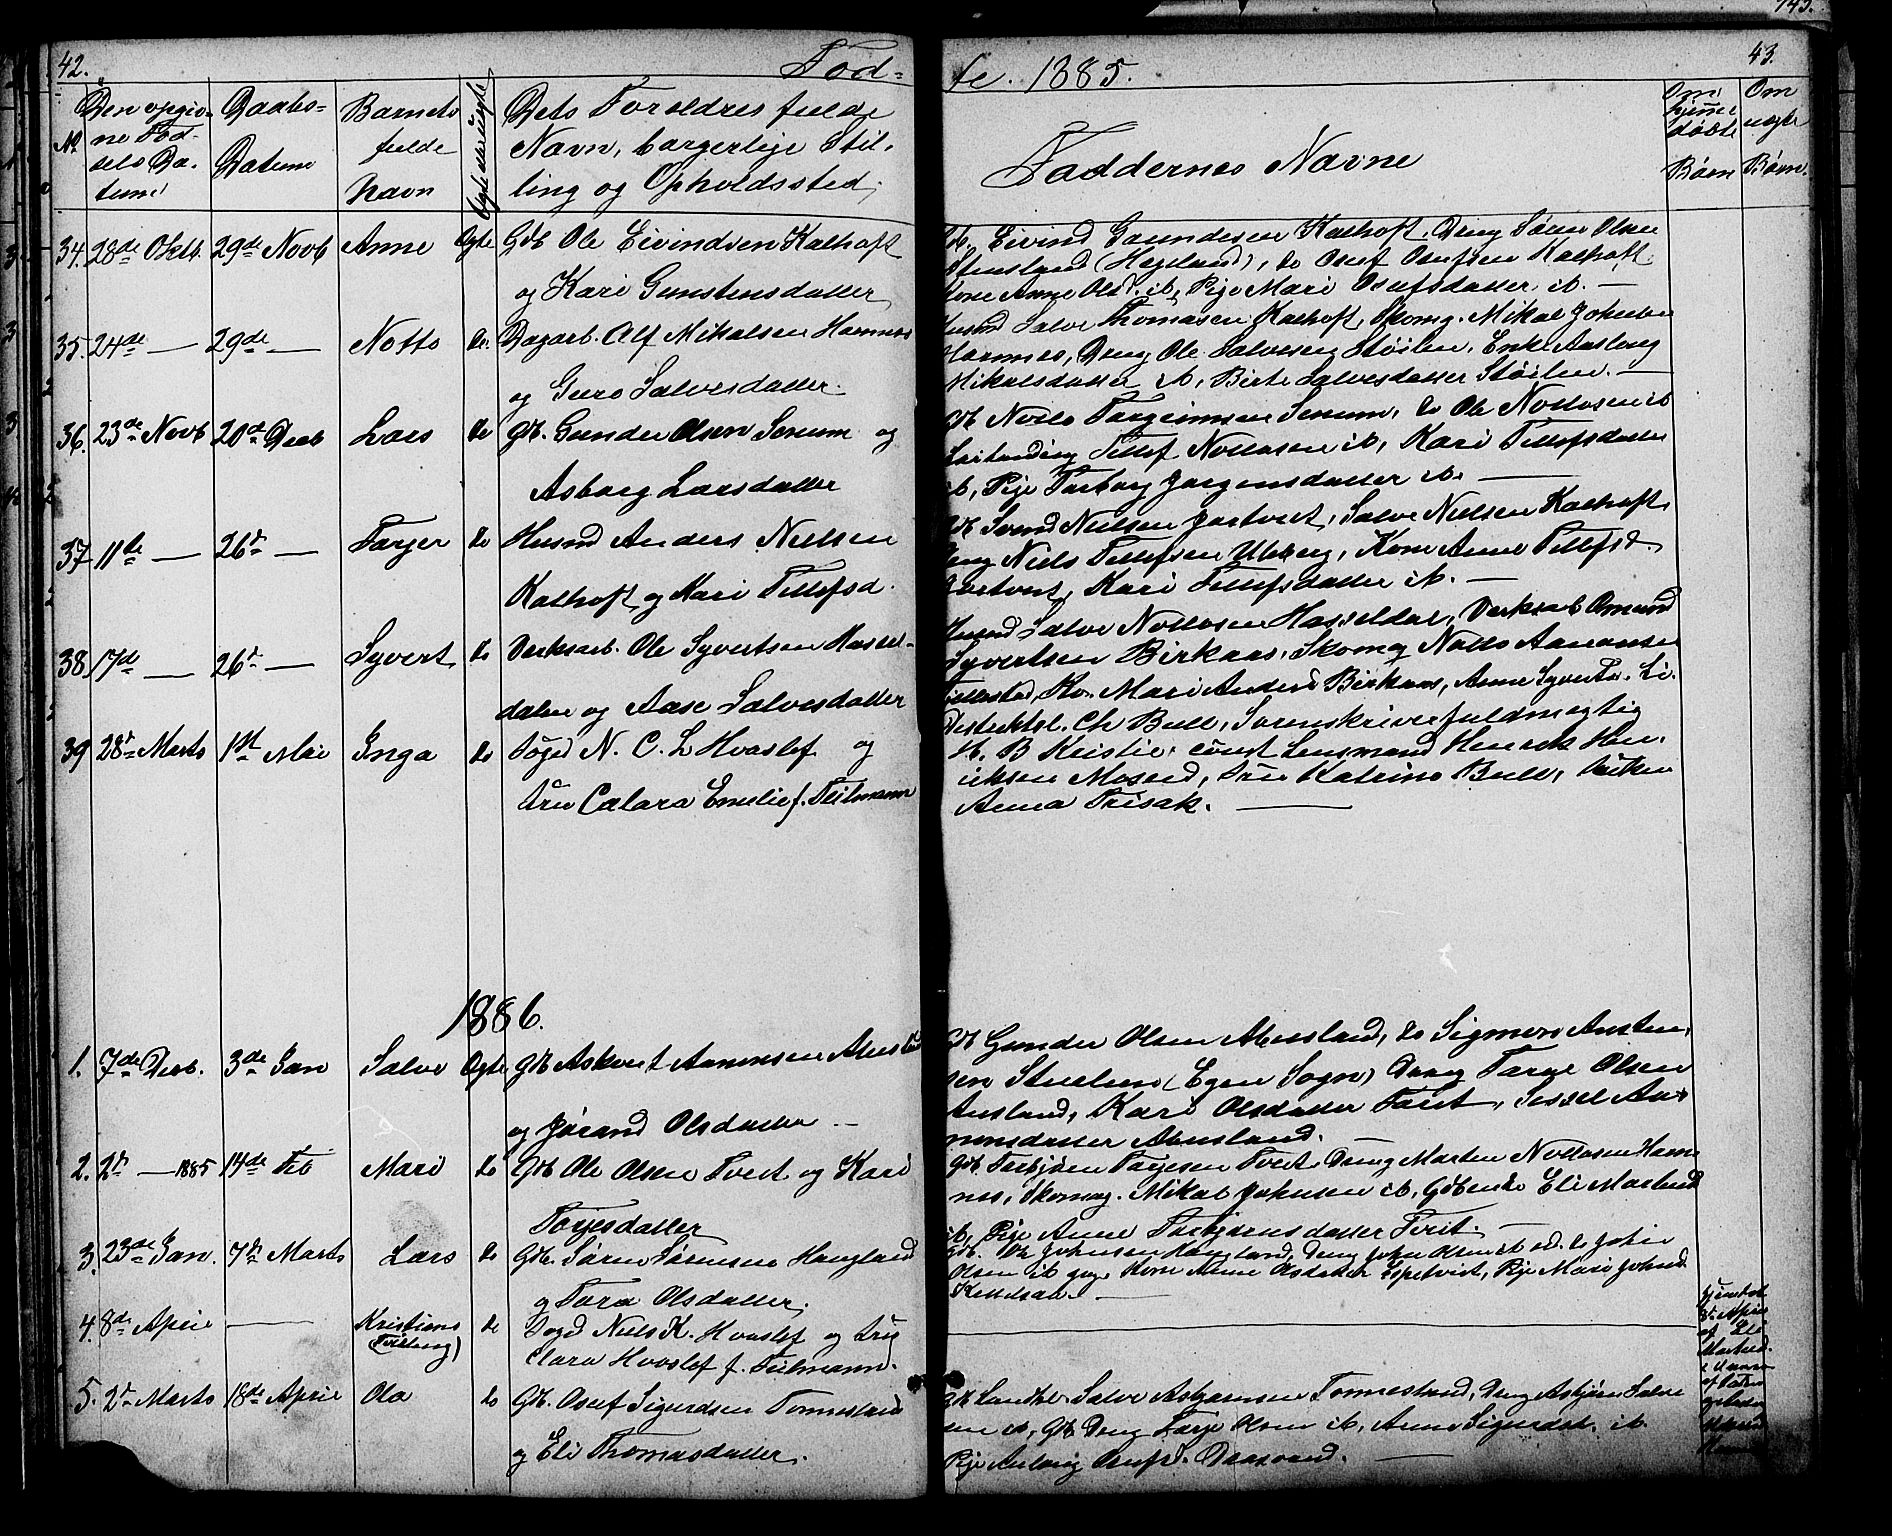 42.
Fød-
Den opgiv-
ne Fød-
sels Da-
tum
No
Daabs-
Datum
Barnets
fulde
Navn
Ægte eller Uægte
Dets Forældres fulde
Navn, borgerlige Stil-
ling og Opholdssted.
34. 28de Oktb. 29de Novb Anne Ægte Gdb Ole Eivindsen Kalhoft
og Kari Gunstensdatter
35. 24de — 29de — Notto do. Dagarb. Alf Mikalsen Hannaas
og Guro Salvesdatter.
36. 23de Novb 20de Decb Lars do Gdb. Gunder Olsen Senum og
Asborg Larsdatter
37 11te — 26de — Torjer do Husmd Anders Nielsen
Kalhoft og Kari Tellefsd.
38. 17de — 26de — Syvert do Verksarb. Ole Syvertsen Hassel-
dalen og Aase Salvesdatter
39 28de Marts 1st Mai Inga do Foged N. C. L Hvoslef og
Fru Calara Emelie f. Teilmann
1886.
1. 7de Decb. 3de Jan Salve Ægte Gdb Askvert Aanonsen Abusland
og Jórand Olsdatter —
2. 2de — 1885 14de Feb Mari do Gdb Ole Olsen Tveit og Kari
Torjesdatter
3. 23de Jan. 7de Marts Lars do Gdb. Søren Sørensen Haugland
og Tora Olsdatter.
4. 8de April — Kristians do Foged Niels K. Hvoslef og Fru
Clara Hvoslef f. Teilmann.
5. 2de Marts 18de April Ola do Gdb. Osuf Sigurdsen Tonnesland
og Eli Thomasdatter.
43.
te. 1885.
Faddernes Navne
Om
hjemme
døbte
Børn
Om
uægte
Børn.
Gdb. Eivind Gundersen Kalhoft. Dreng Søren Olsen
Stensland (Hegeland), do Osuf Osufsen Kalhoft
Kone Anne Olsd. ib, Pige Mari Osufsdatter ib. —
Husmd Salve Thomasen Kalhoft, Skomg. Mikal Johnsen
Hannaas, Dreng Ole Salvesen Støilen, Enke Aaslaug
Mikalsdatter ib, Birte Salvesdatter Støilen. —
Gdb Notto Torgrimsen Senum, do Ole Nottosen ib
Tellef Nottosen ib, Kari Tellefsdatter
ib, Pige Torborg Jørgensdatter ib. —
Gdb Svend Nielsen Jortveit, Salve Nielsen Kalhoft
Dreng Niels Tellefsen Uleberg, Kone Anne Tellefsd.
Jortveit, Kari Tellefsdatter ib. —
Husmd Salve Nottosen Hasseldal, Verksarb Omund
Syvertsen Birkaas, Skomg Notto Aanonsen
Ko. Mari Andersd Birkaas, Anne Syvertsd. Li.
Distriktsl. Ch Bull, Sorenskriverfuldmægtig
H. B Kristie, const Lensmand Henrik Hen-
riksen Moseid, Fru Katrine Bull, Frøken
Anna Trisak. —
Gdb Gunder Olsen Abusland, do Sigmon Austen-
sen Stuelien (Egen Sogn) Dreng Torge Olsen
Abusland, Kari Olsdatter Tveit, Sissel Aa-
nonsdatter Abusland.
Gdb. Torbjøen Torjesen Tveit Dreng Marten Nottosen Hanne
nes, Skomag. Mikal Johnsen ib, Gdbenke Eli Marked
ib, Pige Anne Torbjørnsdatter Tveit. —
Gdb. Ole Johnsen Haugland, Dreng John Olsen ib
Olsen ib Kone Anne Olsdatter Espetveit, Pige Mari Johnsd
Ketilsaa. —
Gdb Landhdl. Salve Asbjørnsen Tonnesland, Dreng Asbjørn Salve
sen ib, Gdb Dreng Torje Olsen ib, Anne Sigurdsdt. ib.
Pige Aslaug Osufsd. Draasvand. —
Hjemdøbt
8de April
af Eli